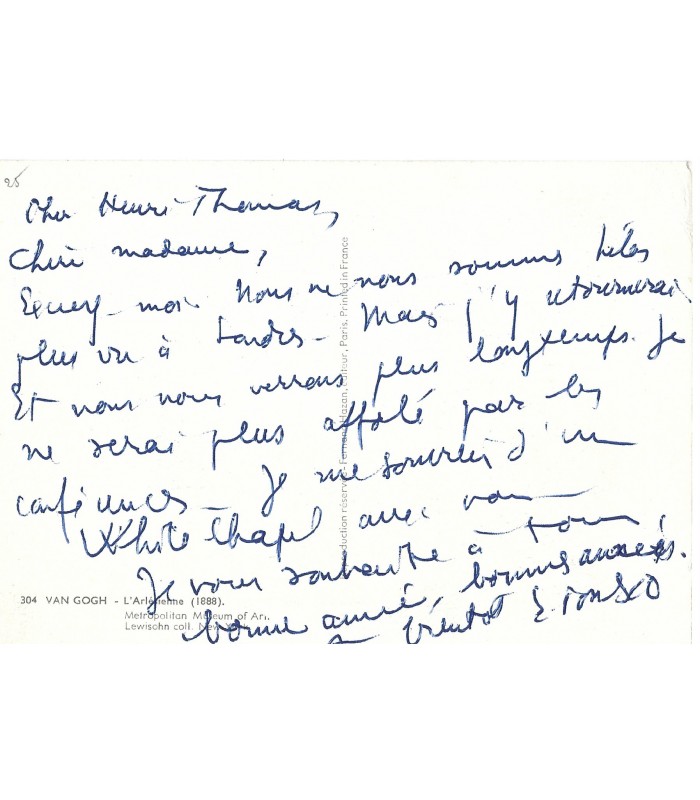 25
Cher Henri Thomas,
Chère madame,
Excusez-moi. Nous ne nous sommes hélas
plus vu à Londres - Mais j'y retournerai
Et nous nous verrons plus longtemps. Je
ne serai plus affolé par les
conférences - Je me souviens d'un
White Chapel avec vous
Je vous souhaite à tous,
bonne année, bonnes années.
à bientôt E. Ionesco
304 VAN GOGH - L'Arlésienne (1888).
Metropolitan Museum of Art,
Lewisohn coll. New York
reproduction réservée - Fernand Hazan, Editeur, Paris, Printed in France